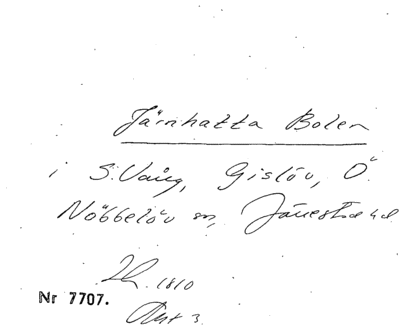 Järnhatta Bolen
i S. Vång, Gislöv, Ö.
Nöbbelöv sn, Järrestad hd
1810
Nr 7707.
3.